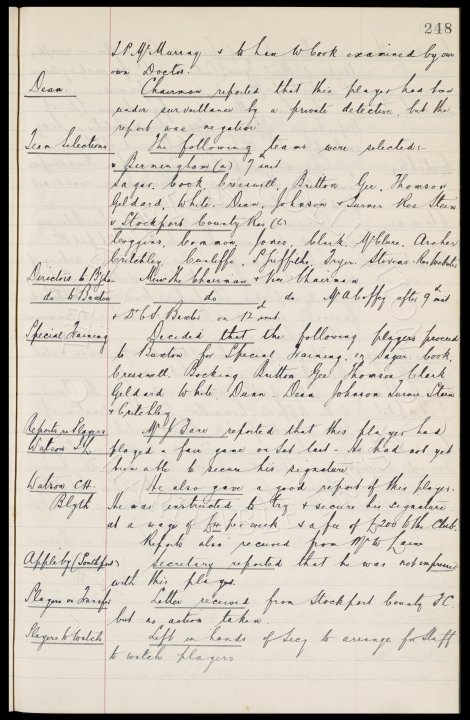 248
J P McMurray & to have W Cook examined by our
own Doctor.
Dean. Chairman reported that this player had been
under surveillance by a private detective, but the
report was negative
Team Selections The following teams were selected:-
v Birmingham (a) 7th inst
Sagar, Cook, Cresswell, Britton, Gee, Thomson
Geldard, White, Dean, Johnson & Turner Res Stein
v Stockport County Res (h)
Coggins, Common, Jones, Clark, McClure, Archer
Critchley, Cunliffe, Griffiths, Fryer, Stevens. Res
Directors to B'gham Messrs the Chairman & Vice Chairman
do to Buxton do do Mr A Coffey after 9th inst
& Dr C S Baxter on 12th inst
Special Training Decided that the following players proceed
to Buxton for Special Training, viz Sagar, Cook,
Cresswell, Bocking, Britton, Gee, Thomson, Clark
Geldard, White, Dunn, Dean, Johnson, Turner, Stein
& Critchley
Reports re Players Mr J Sare reported that this player had
Watson played a fair game on Sat last. He had not yet
been able to secure his signature
Watson C.H. He also gave a good report of this player.
Blyth He was instructed to try & secure his signature
at a wage of £4 per week & a fee of £200 to the Club.
Reports also received from Mr W
Appleby (Southport) Secretary reported that he was not impressed
with this player.
Players on Transfer Letter received from Stockport County F.C.
but no action taken.
Players to Watch Left in hands of Secy to arrange for Staff
to watch players